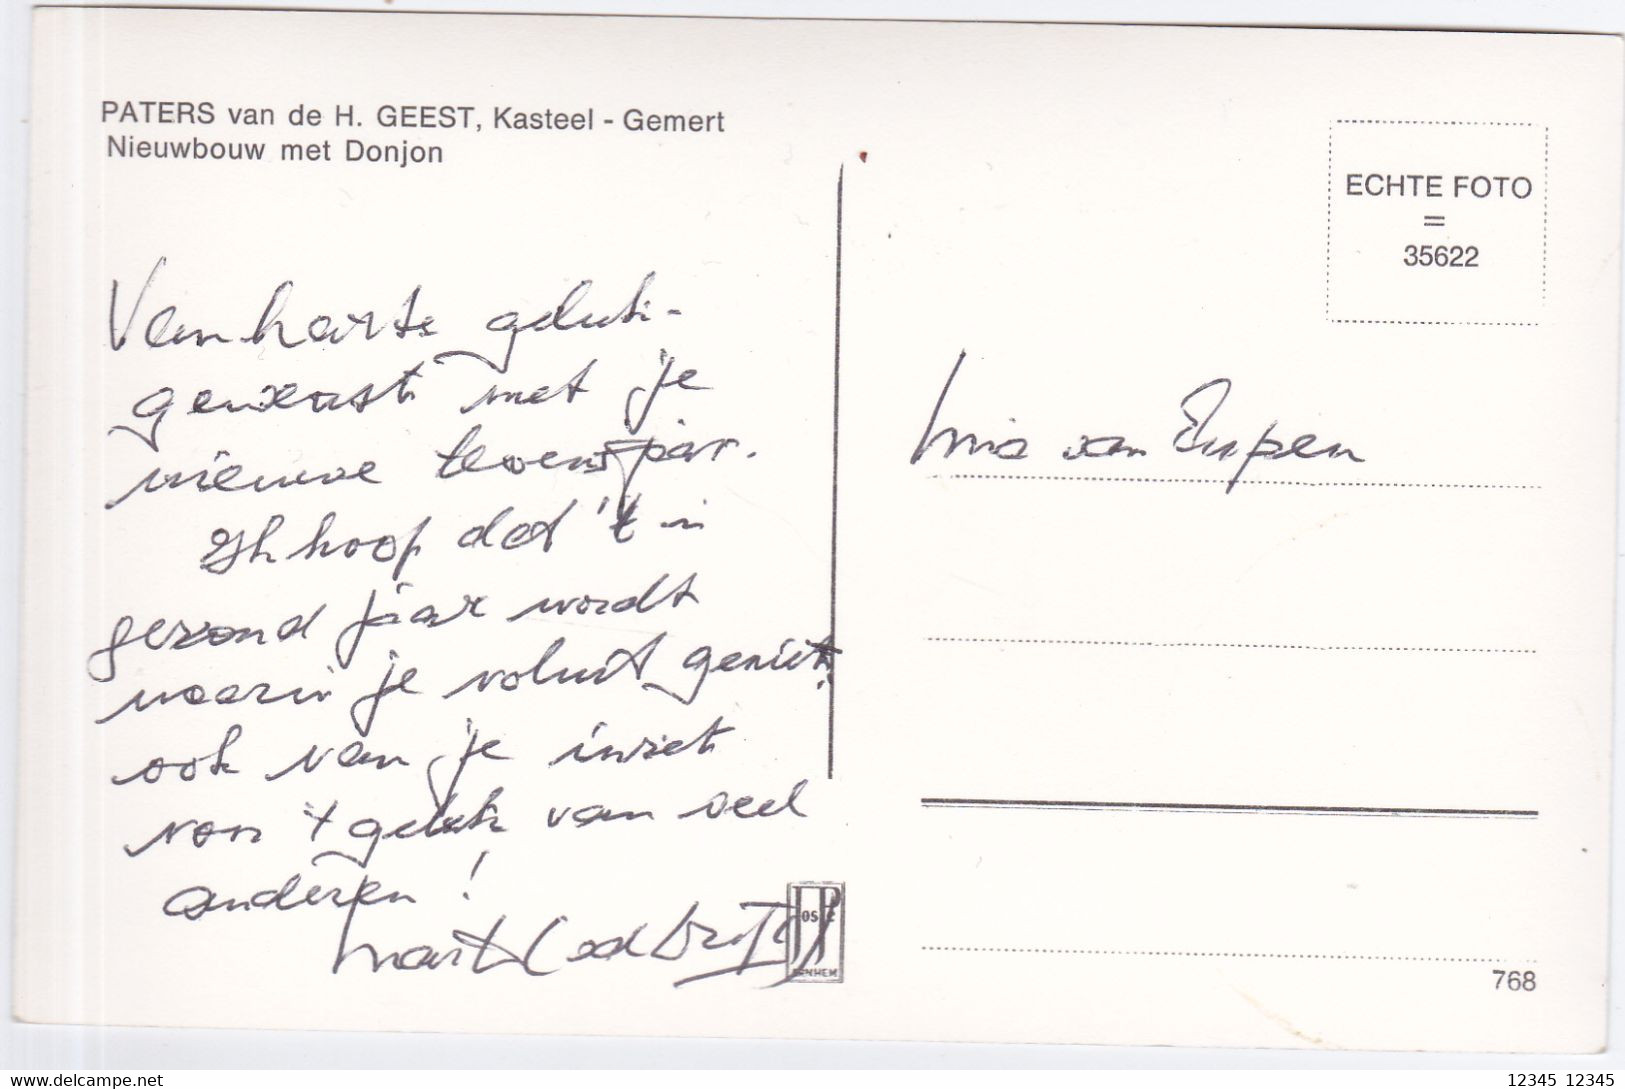 PATERS van de H. GEEST, Kasteel - Gemert
Nieuwbouw met Donjon
Van harte geluk-
gewenst met je
nieuwe levensjaar.
Ik hoop dat 't 'n
gezond jaar wordt
waarin je voluit geniet,
ook van je inzet
voor 't geluk van veel
anderen!
Mart
ECHTE FOTO
=
35622
Mia van Eupen
JOS PÉ
ARNHEM
768
12345 12345